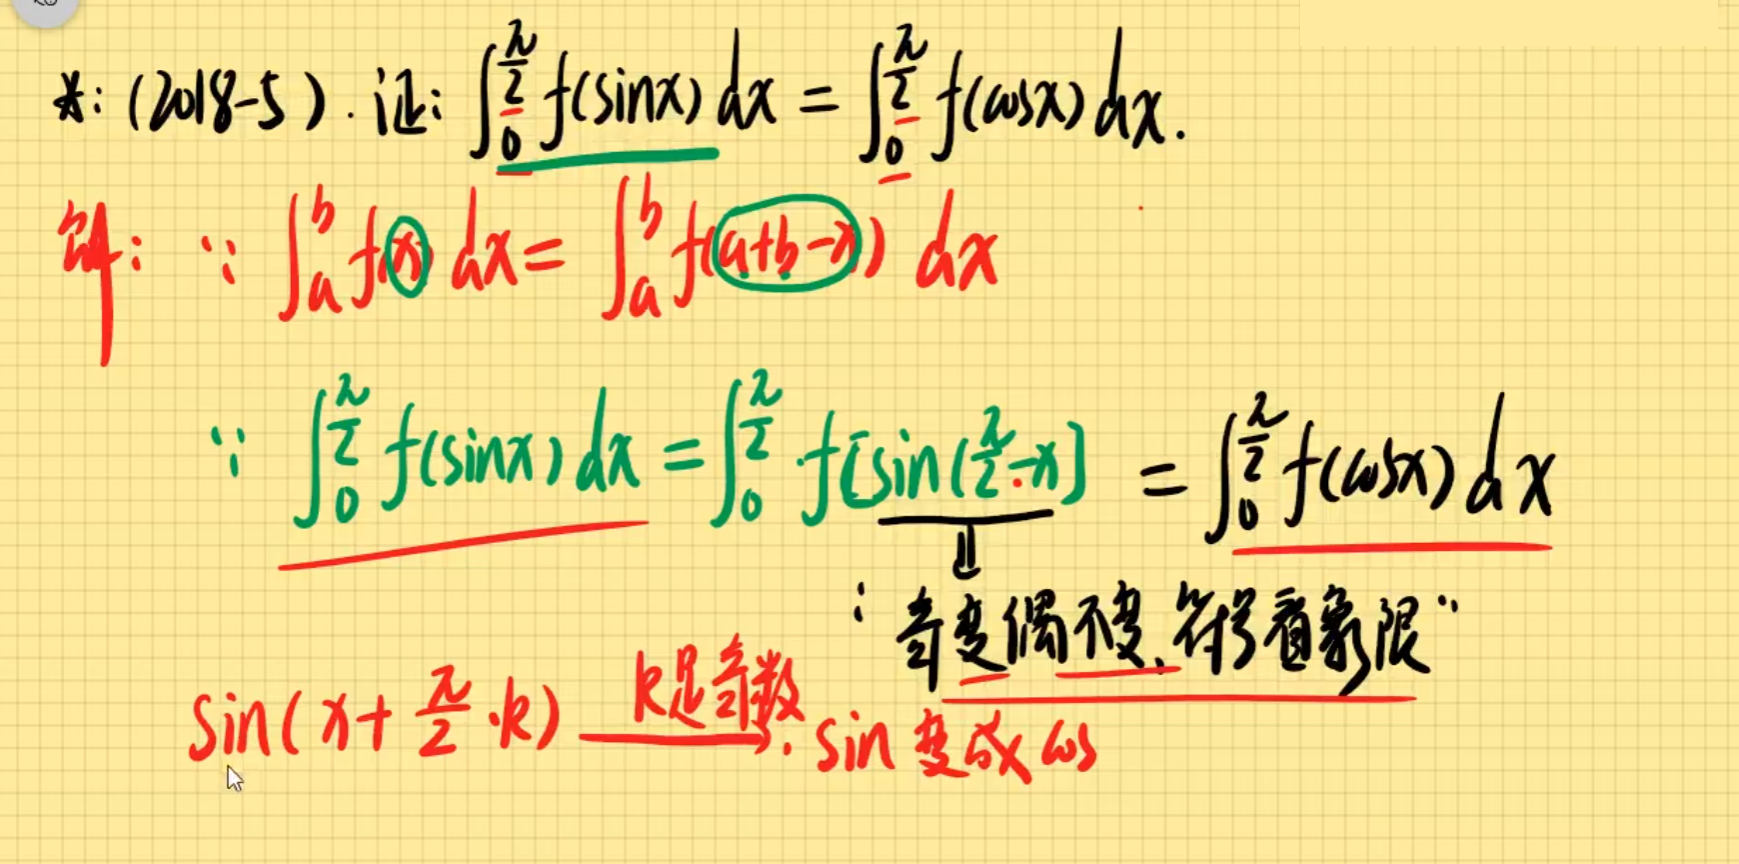 *: (2018-5). 证: ∫₀^(π/2) f(sinx) dx = ∫₀^(π/2) f(cosx) dx.
解: ∵ ∫ₐᵇ f(x) dx = ∫ₐᵇ f(a+b-x) dx
∵ ∫₀^(π/2) f(sinx) dx = ∫₀^(π/2) f[sin(π/2-x] = ∫₀^(π/2) f(cosx) dx
⇓
: 奇变偶不变、符号看象限"
sin(x+π/2·k) k是奇数. sin变成cos